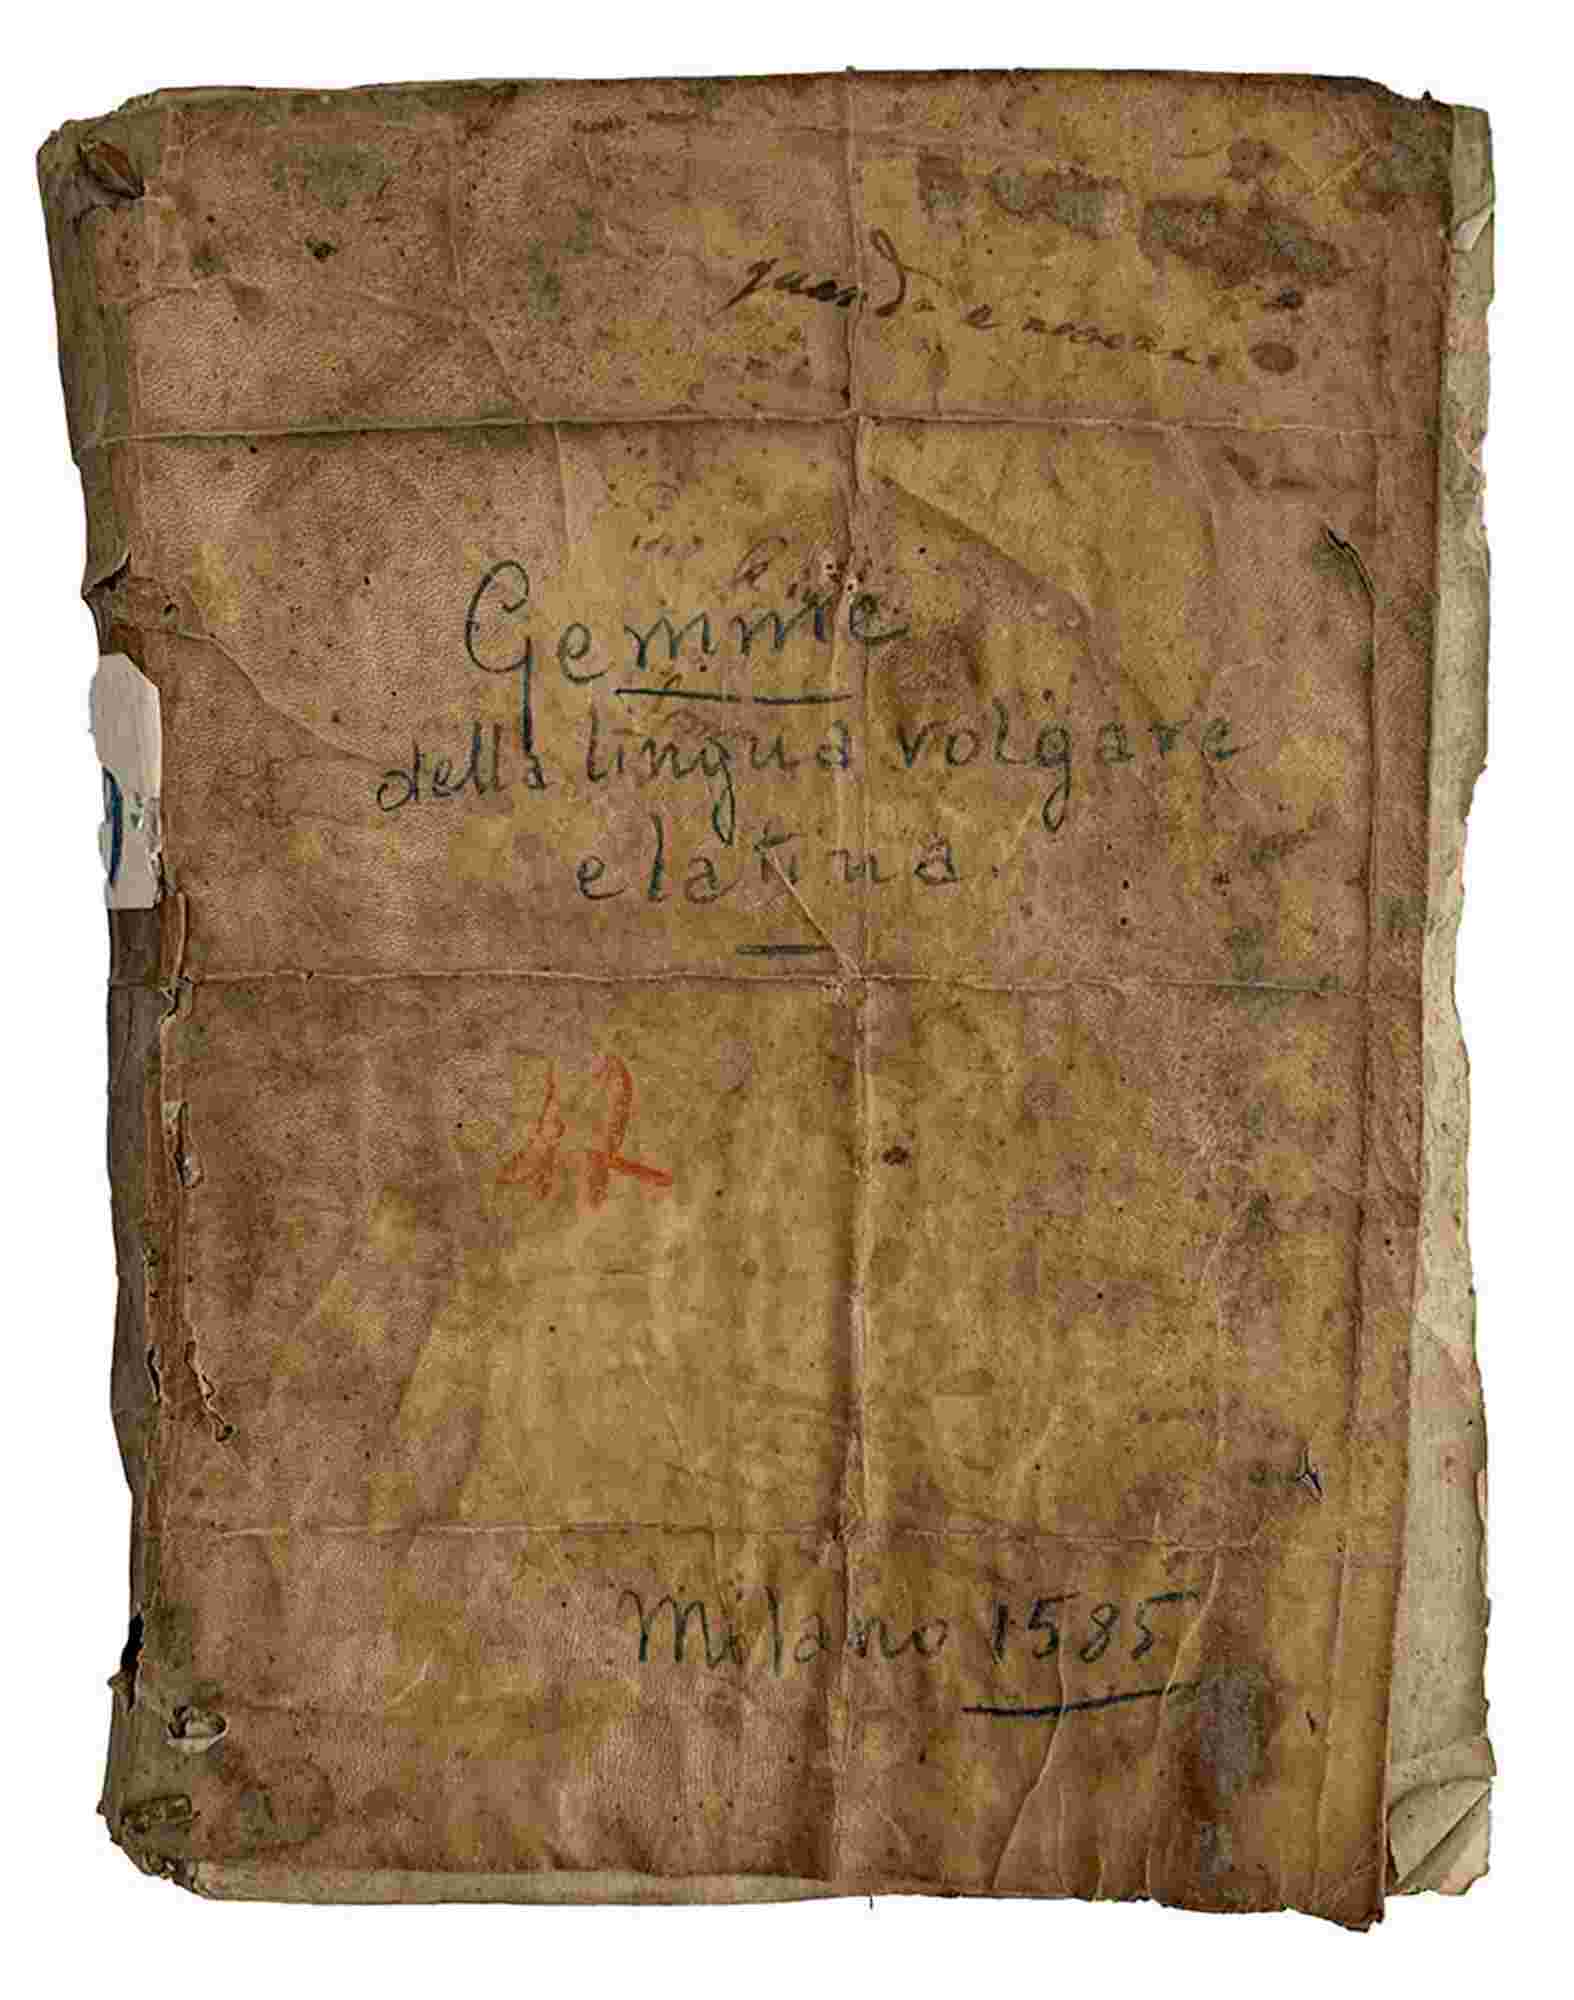 quando e
Gemme
della lingua volgare
e latina.
42
Milano 1585